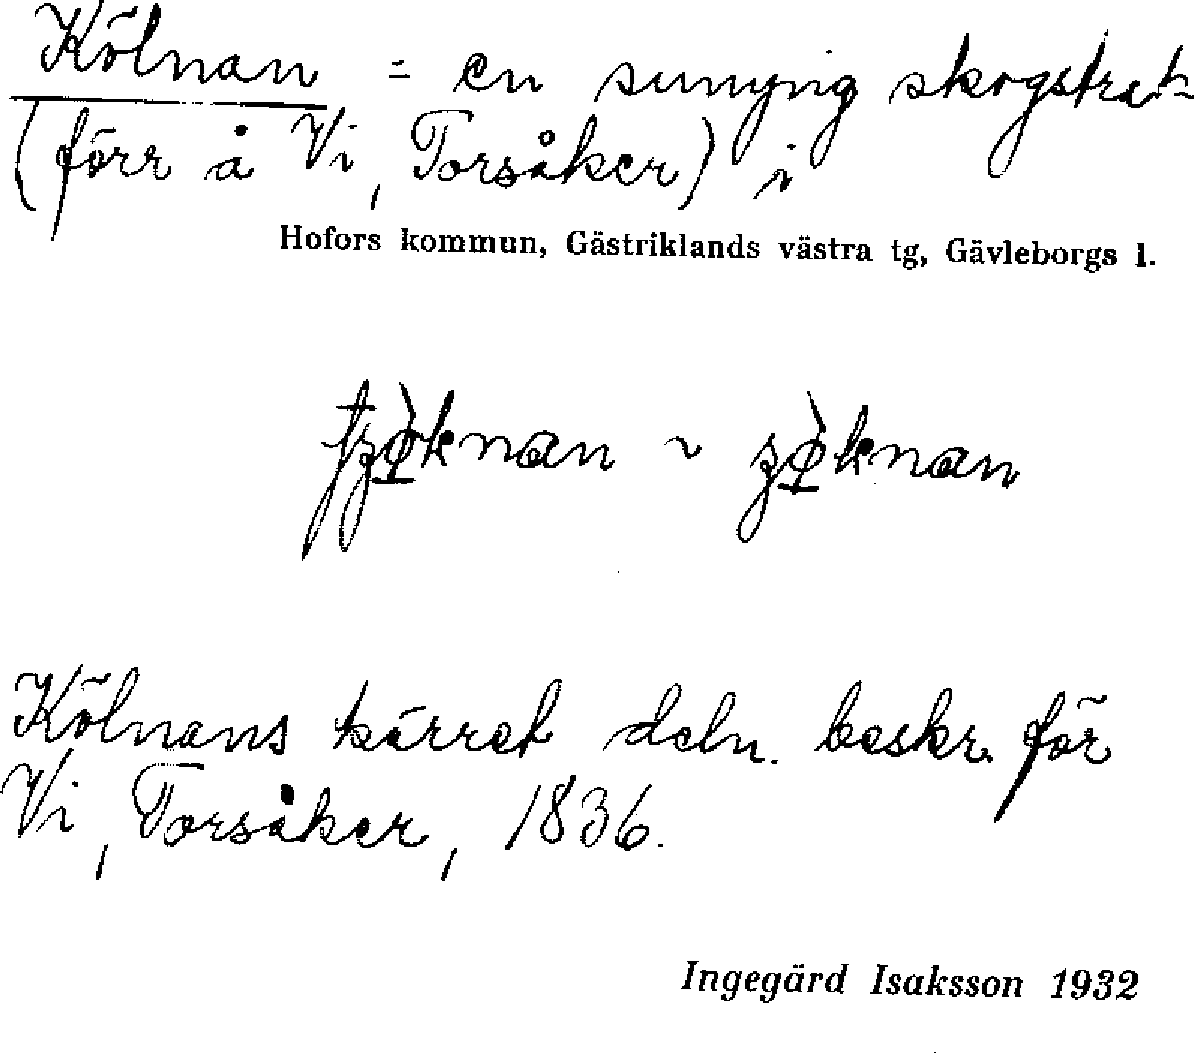 Kölnan = en sumpig skogstrakt
(förr å Vi, Torsåker) i
Hofors kommun, Gästriklands västra tg, Gävleborgs l.
Kölnans kärret deln. beskr. för
Vi, Torsåker, 1836.
Ingegärd Isaksson 1932